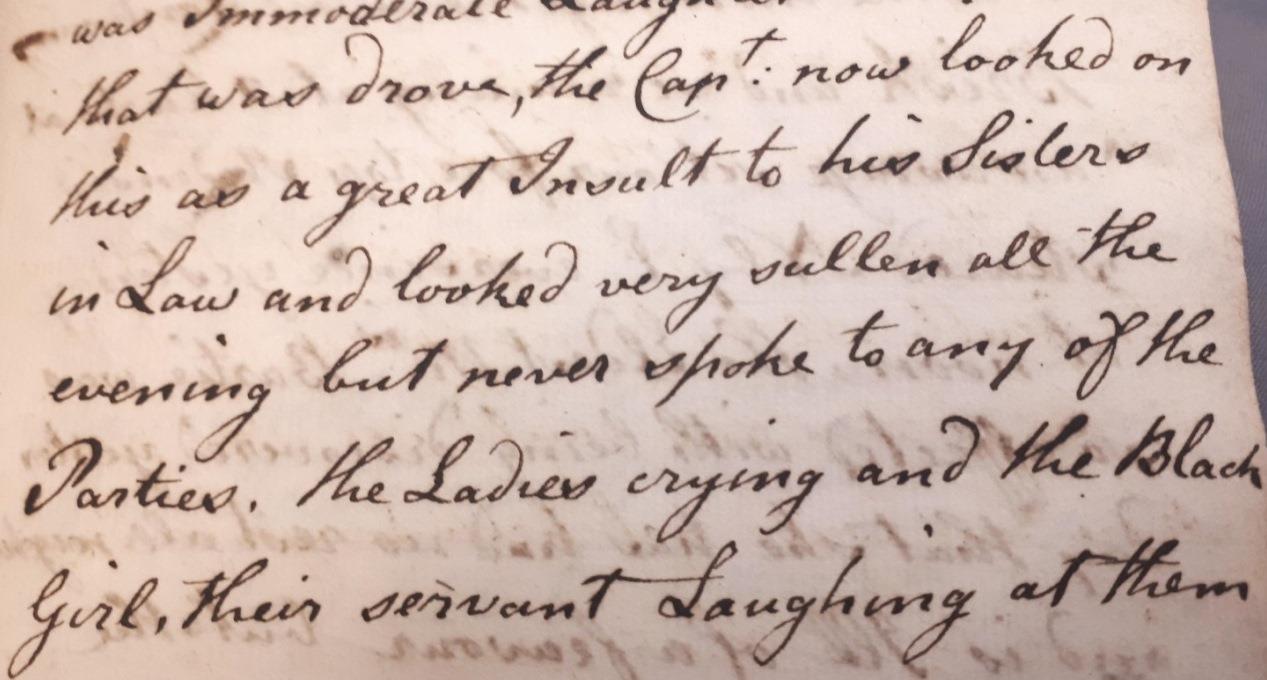 was Immoderate Laughter
that was drove, the Capt: now looked on
this as a great Insult to his Sisters
in Law and looked very sullen all the
evening but never spoke to any of the
Parties. the Ladies crying and the Black
Girl, their servant Laughing at them